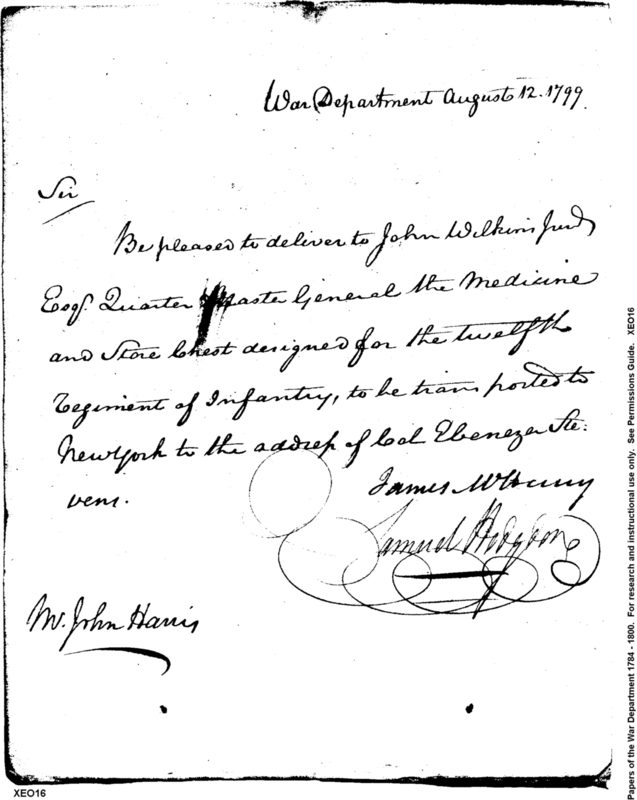 War Department August 12. 1799.
Sir
Be pleased to deliver to John Wilkins Junr
Esqr. Quarter Master General the Medicine
and Store Chest designed for the twelfth
Regiment of Infantry, to be transported to
New York to the address of Col Ebenezer Ste:
vens.
James McHenry
Samuel Hodgdon
Mr. John Harris
XEO16
Papers of the War Department 1784 - 1800. For research and instructional use only. See Permissions Guide. XEO16